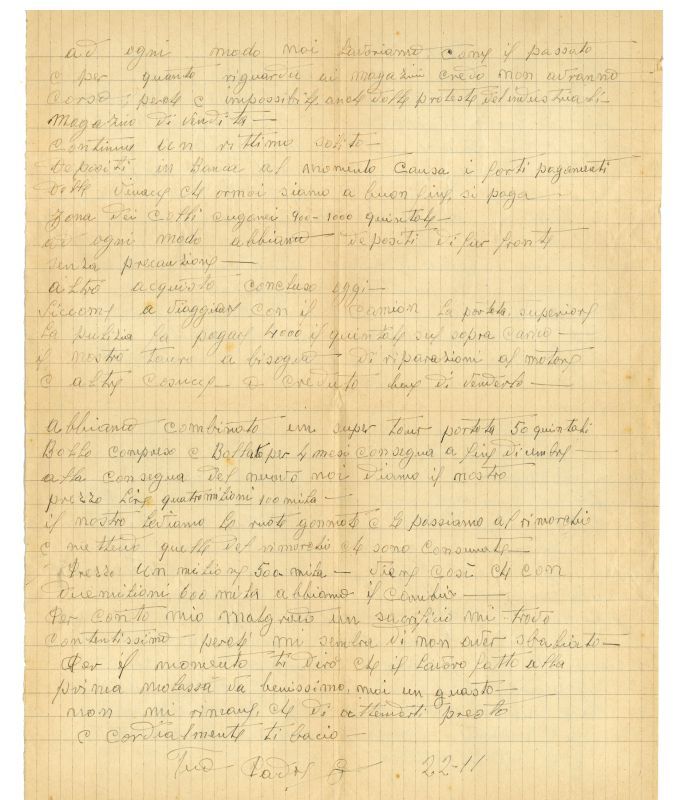 ad ogni modo noi lavoriamo come il passato
e per quanto riguarda ai magazini credo non avranno
corso: perche e impossibile anche dalle proteste del industriali -
Magazino di vendita -
Continua un rittimo solito -
Depositi in Banca al momento causa i forti pagamenti
delle vinacce che ormai siamo a buon fine. si paga
Zona dei Colli euganei 900-1000 quintale -
ad ogni modo abbiamo depositi di far fronte
senza precauzione -
altro acquisto concluso oggi -
Siccome a viaggiare con il Camion la portata superiore
la pulizia la pagare 4000 il quintale sul sopra carico -
il nostro tauro a bisogno di riparazioni al motore
e altre cosucce o creduto bene di venderlo -
abbiamo combinato un super tauro portata 50 quintali
Bollo compreso e Bollato per 4 mesi consegna a fine dicembre -
alla consegna del nuovo noi diamo il nostro
prezzo Lire quatromilioni 100 mila -
il nostro lediamo le ruote gommate e le passiamo al rimorchio
e mettendo quelle del rimorchio che sono consumate -
Prezzo un milione 500 mila - viene così che con
duemilioni 600 mila abbiamo il cambio -
Per conto mio malgrado un sacrificio mi trovo
contentissimo perche mi sembra di non aver sbaliato -
Per il momento ti dirò che il lavoro fatto alla
prima molassa va benissimo, mai un guasto -
non mi rimane che di attenderti presto
e cordialmente ti bacio -
Tuo Padre 22-11